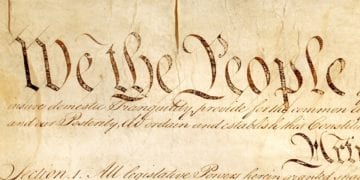 We the People
insure domestic Tranquility, provide for the common
and our Posterity, do ordain and establish this Constit
Arti
Section. 1. All legislative Powers herein granted shal